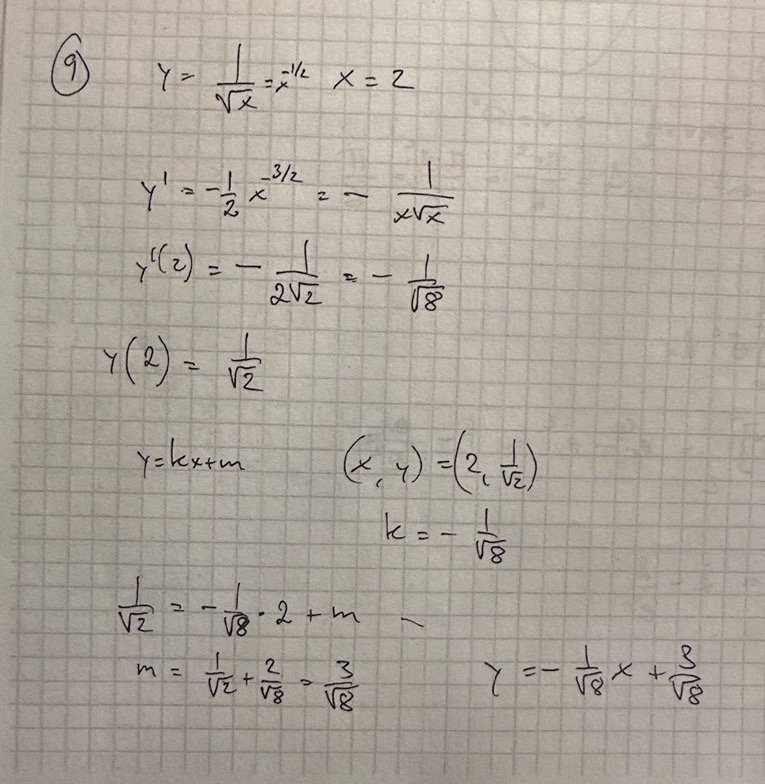 9 y = 1/√x = x^-1/2 x = 2
y' = -1/2 x^-3/2 = - 1/(x√x)
y'(2) = - 1/(2√2) = - 1/√8
y(2) = 1/√2
y=kx+m (x, y) = (2, 1/√2)
k = - 1/√8
1/√2 = - 1/√8 · 2 + m
m = 1/√2 + 2/√8 = 3/√8 y = - 1/√8 x + 3/√8